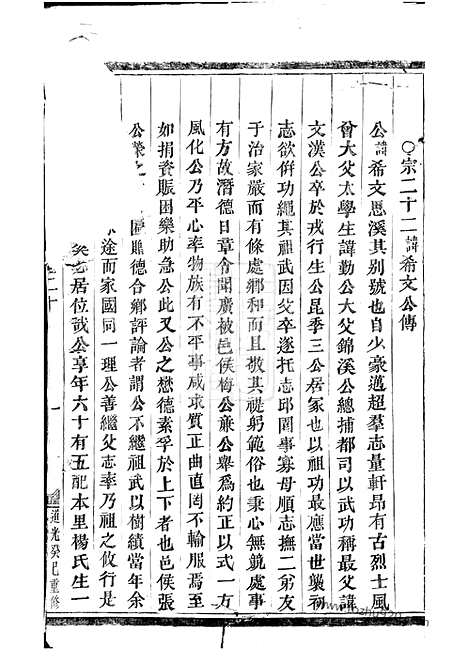 ○宗二十二諱希文公傳
公諱希文思溪其别號也自少豪邁超羣志量軒昂有古烈士風
曾大父太學生諱勤公大父錦溪公總捕都司以武功稱最父諱
文漢公卒於戎行生公昆季三公居冢也以祖功最應當世襲初
志欲併功繩其祖武因父卒遂托志邱園事寡母順志撫二弟友
于治家嚴而有條處鄉和而且敬其禔躬範俗也秉心無競處事
有方故潛德日章令聞廣被邑侯梅公兼公舉爲約正以式一方
風化公乃平心率物族有不平事咸求質正曲直罔不輸服焉至
如捐資賑困樂助急公此又公之懋德素孚於上下者也邑侯張
公榮 匾賜德合鄉評論者謂公不繼祖武以樹績當年余
途而家國同一理公善繼父志率乃祖之攸行是
居位哉公享年六十有五配本里楊氏生一
卷二十
一
道光癸巳重修